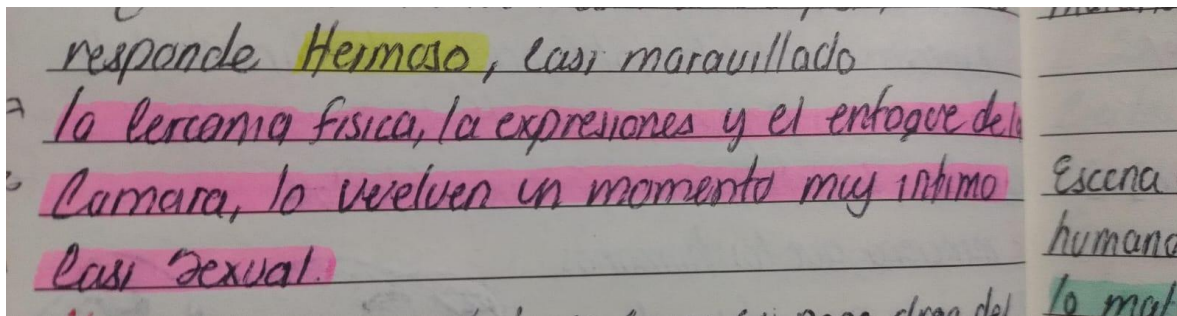 responde Hermoso, casi maravillado
la cercania fisica, la expresiones y el enfoque de la
Camara, lo vuelven un momento muy intimo
casi sexual.
Escena
humano
lo mal